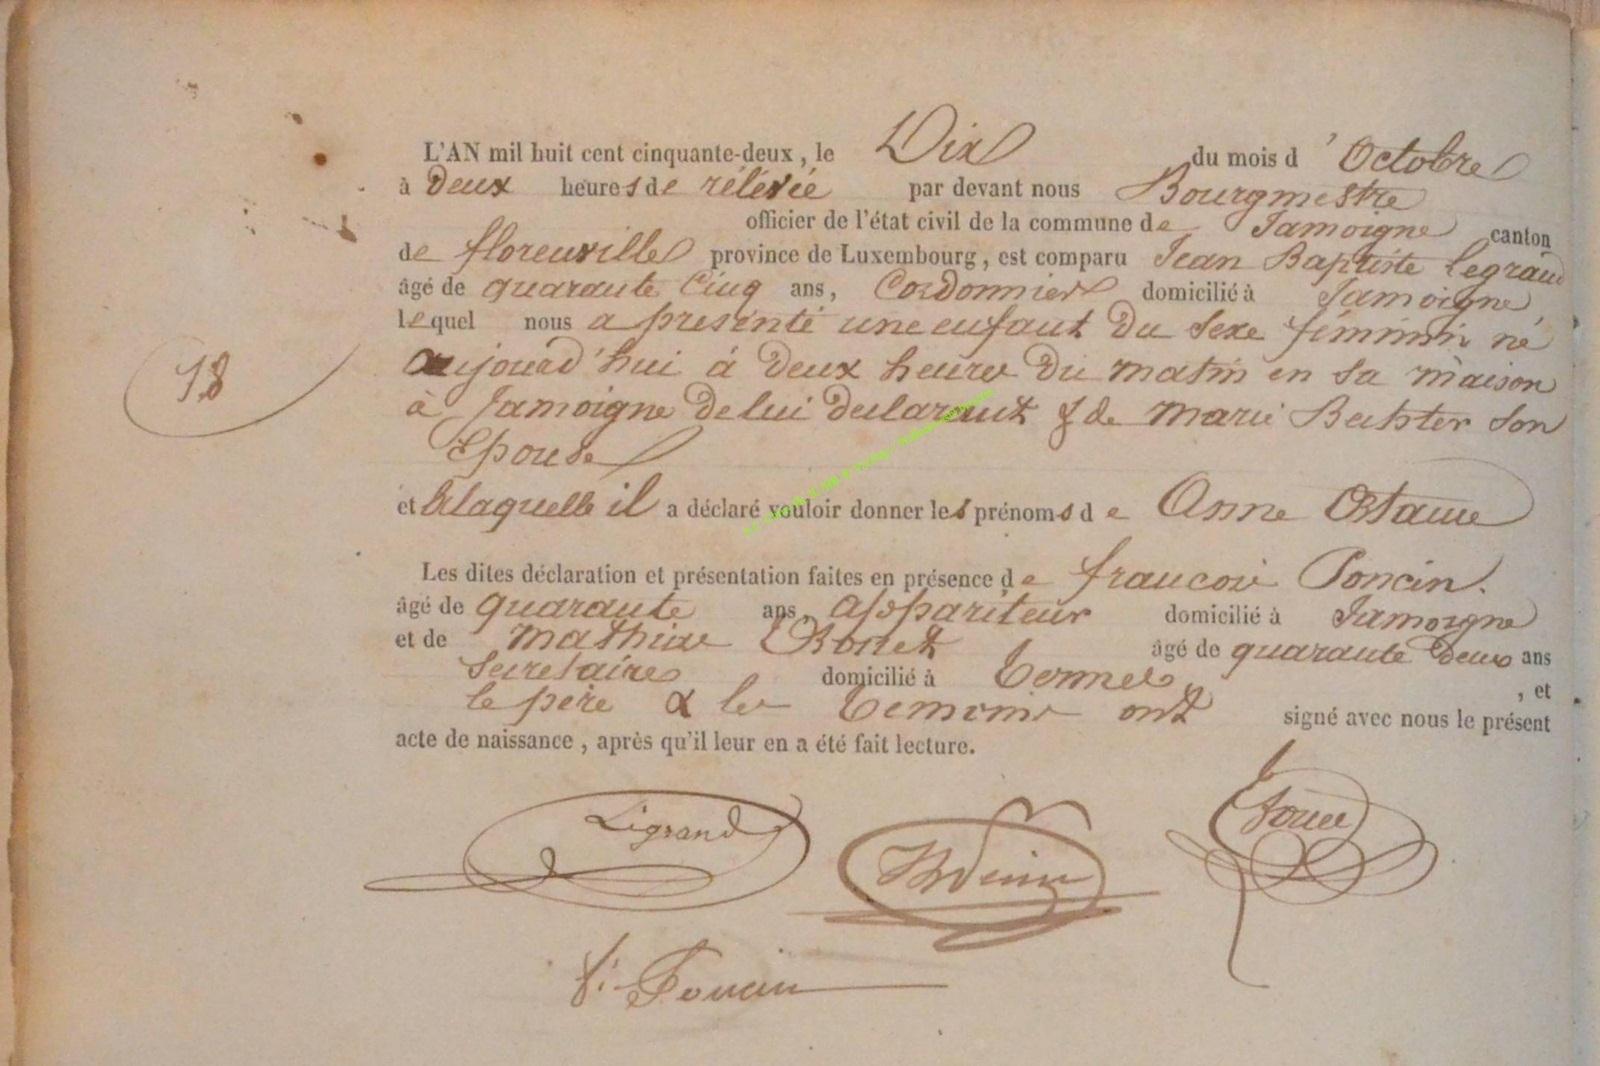 L'AN mil huit cent cinquante-deux, le Dix du mois d'Octobre
à deux heures de rélévée par devant nous Bourgmestre
officier de l'état civil de la commune de Jamoigne canton
de florenville province de Luxembourg, est comparu Jean Baptiste Legrand
âgé de quarante Cinq ans, Cordonnier domicilié à Jamoigne
lequel nous a présenté une enfant du sexe féminin né
aujourd'hui à deux heures du matin en sa maison
18
à Jamoigne de lui déclarant & de Marie son
Epouse
et à laquelle il a déclaré vouloir donner les prénoms de Anne
Les dites déclaration et présentation faites en présence de francois Poncin.
âgé de quarante ans, appariteur domicilié à Jamoigne
et de Mathias âgé de quarante deux ans
secretaire domicilié à , et
le père & les temoins ont signé avec nous le présent
acte de naissance, après qu'il leur en a été fait lecture.
Legrand
f. Poncin